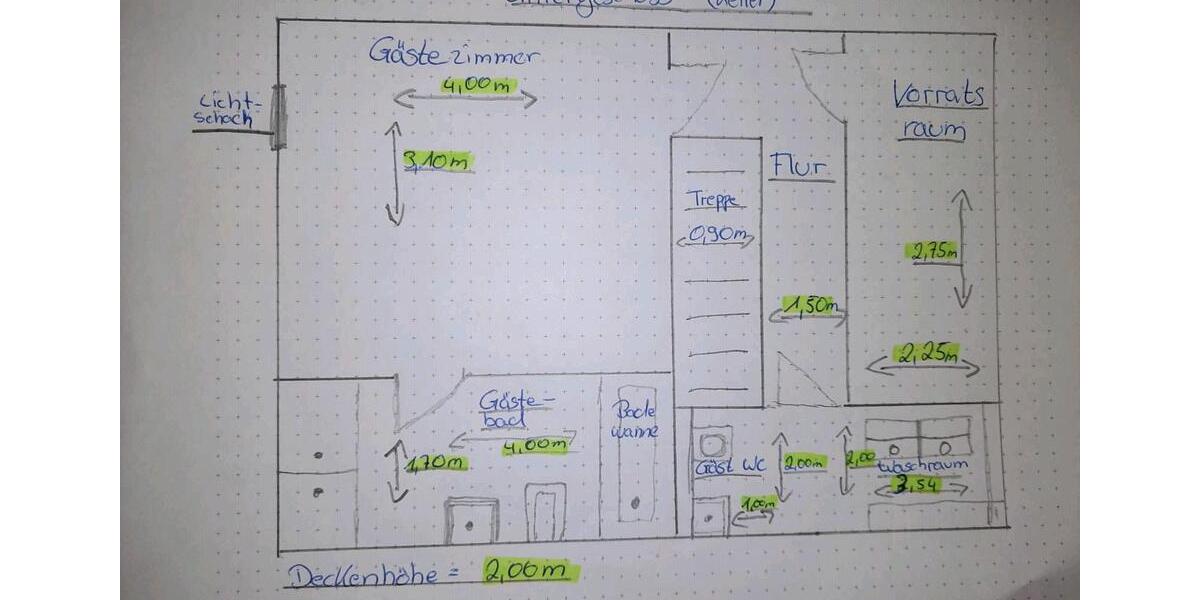 (Keller)
Gästezimmer
4,00m
Licht-
schach
3,10m
Vorrats
raum
Flur
Treppe
0,90m
2,75m
1,50m
2,25m
Gäste-
bad
4,00m
Bade
wanne
1,70m
Gäst WC
2,00m
2,00
Waschraum
1,00m
Deckenhöhe = 2,00m